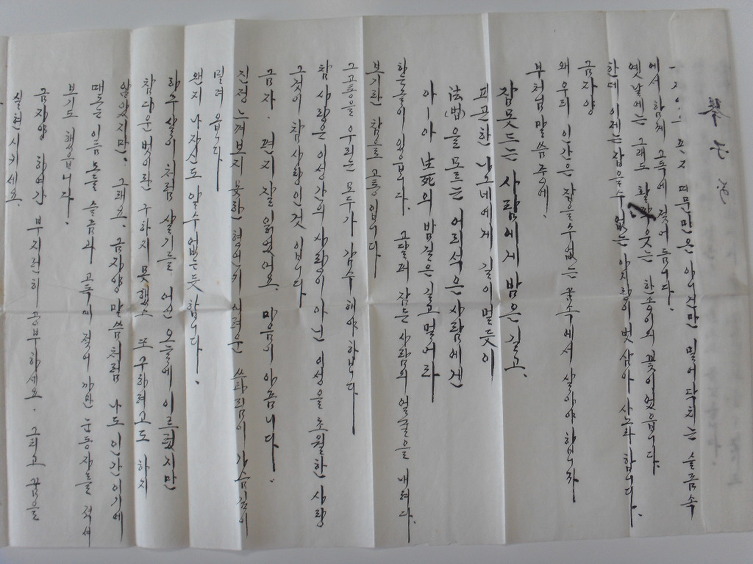 편지 때문만은 아니건만 밀어닥치는 슬픔속
에서 함께 고독에 젖어듭니다.
옛날에는 그래도 활짝웃는 한송이의 꽃이었읍니다.
한데 이제는 잡을수 없는 아지랑이 벗삼아 사노라 합니다.
금자양
왜 우리 인간은 잡을수없는 꿈속에서 살아야 합니까
부처님 말씀중에.
잠못드는 사람에게 밤은 길고.
피곤한 나그네에게 길이 멀듯이
法(법)을 모르는 어리석은 사람에겐
아-아 生死의 밤길은 길고 멀어라
하는 들이 있읍니다. 고달퍼 잠든 사람의 얼굴을 내려다
보기란 참으로 고통입니다
그 고통을 우리는 모두가 감수해야 합니다
참사랑은 이성간의 사랑이 아닌 이성을 초월한 사랑
그것이 참사랑인 것 입니다
금자. 편지 잘 읽었어요. 마음이 아픔니다.
진정 느껴보지 못한 쓰라림이 가슴깊이
밀려 옵니다
왠지 나자신도 알수 없는듯 합니다.
하루살이 처럼 살기를 어언 오늘에 이르렀지만
참다운 벗이란 구하지 못했오 또 구하려고도 하지
않았지만. 그래요. 금자양 말씀처럼 나도 인간이기에
때론 이름모를 슬픔과 고독에 젖어 까만 눈동자를 적셔
보기도 했읍니다.
금자양 하여간 부지런히 공부하세요. 그리고 꿈을
실현시키세요